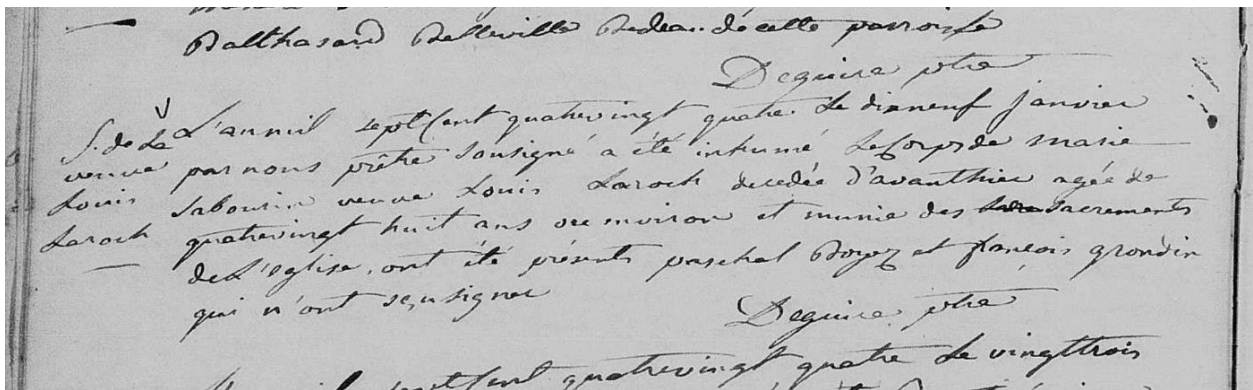 Balthasard Belleville Bedeau de cette parroisse
Deguire ptre
S. de La
veuve
Louis
Laroch
L'an mil sept Cent quatrevingt quatre Le dixneuf Janvier
par nous prêtre Sousigné a été inhumé Le Corps de marie
Sabourin veuve Louis Laroch decedée d'avanthier agée de
quatrevingt huit ans ou environ et munie des Sacrements
de L'église, ont été présents paschal Boyez et francois grondin
qui n'ont sçu signer
Deguire ptre
sept Cent quatrevingt quatre Le vingttrois